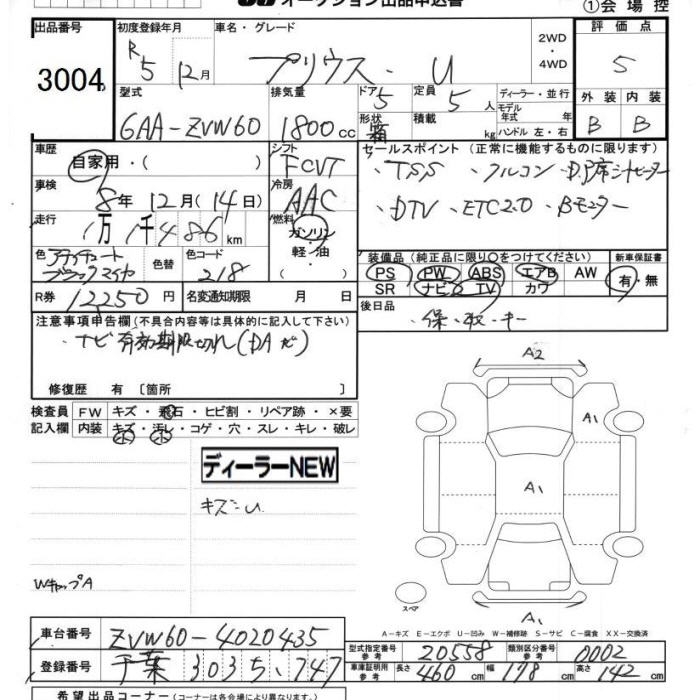 オークション出品申込書
①会場控
出品番号 初度登録年月 車名・グレード 2WD・4WD 評価点
3004 R5 12月 プリウス・U 5
型式 排気量 ドア 定員 ディーラー・並行 外装 内装
6AA-ZVW60 1800cc 5 5人 モデル年式 年 B B
形状 箱 積載 kg ハンドル 左・右
車歴 シフト セールスポイント(正常に機能するものに限ります)
自家用・( ) FCVT ・TSS ・フルコン ・D.P席シートヒーター
車検 冷房 ・DTV ・ETC2.0 ・Bモニター
8年12月(14日) AAC
走行 燃料
1万1千486km ガソリン・軽油・
色 色替 色コード 装備品(純正品に限り○をつけてください) 新車保証書
アティチュードブラックマイカ 218 PS PW ABS エアB AW 有・無
SR ナビ TV カワ
R券 12250円 名変通知期限 月 日 後日品
・保・取・キー
注意事項申告欄(不具合内容等は具体的に記入して下さい)
・ナビ有効期限切れ(DAだ)
修復歴 有 [箇所 ]
検査員 FW キズ・飛石・ヒビ割・リペア跡・×要
記入欄 内装 キズ・汚レ・コゲ・穴・スレ・キレ・破レ
小 小
ディーラーNEW
キズ=U
WキャップA
A2
A1
A1
A1
スペア
A-キズ E-エクボ U-凹み W-補修跡 S-サビ C-腐食 XX-交換済
車台番号 ZVW60-4020435
型式指定番号 参考 20558 類別区分番号 参考 0002
登録番号 千葉 303 5・747
車庫証明用 参考 長さ 460cm 幅 178cm 高さ 142cm
希望出品コーナー(コーナーは各会場により異なります。)